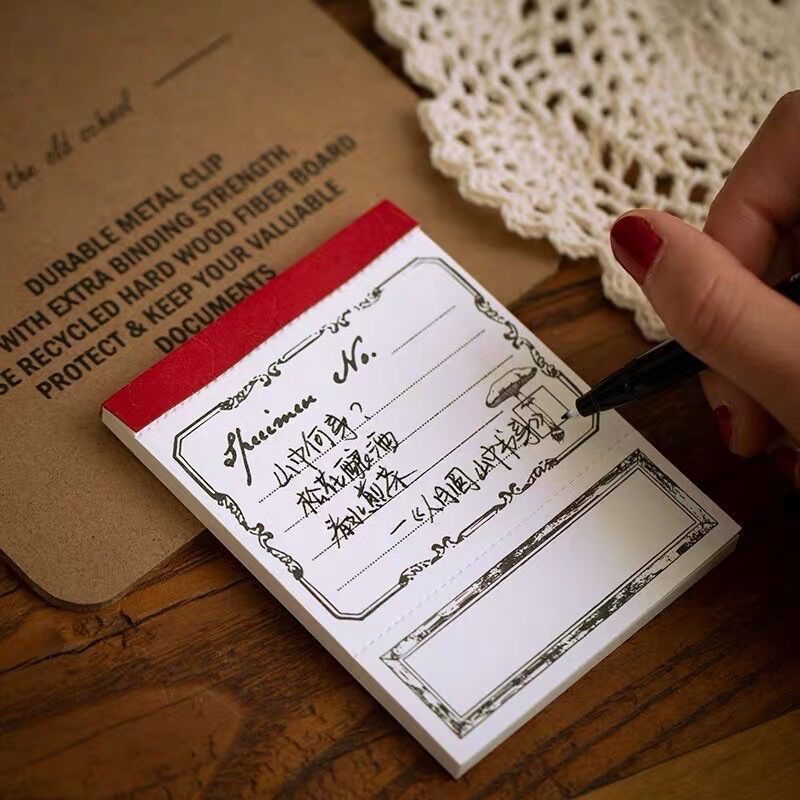 the old school
DURABLE METAL CLIP
WITH EXTRA BINDING STRENGTH,
SE RECYCLED HARD WOOD FIBER BOARD
PROTECT & KEEP YOUR VALUABLE
DOCUMENTS
Specimen No.
山中何事？
松花酿酒
春水煎茶
—《人月圆·山中书事》